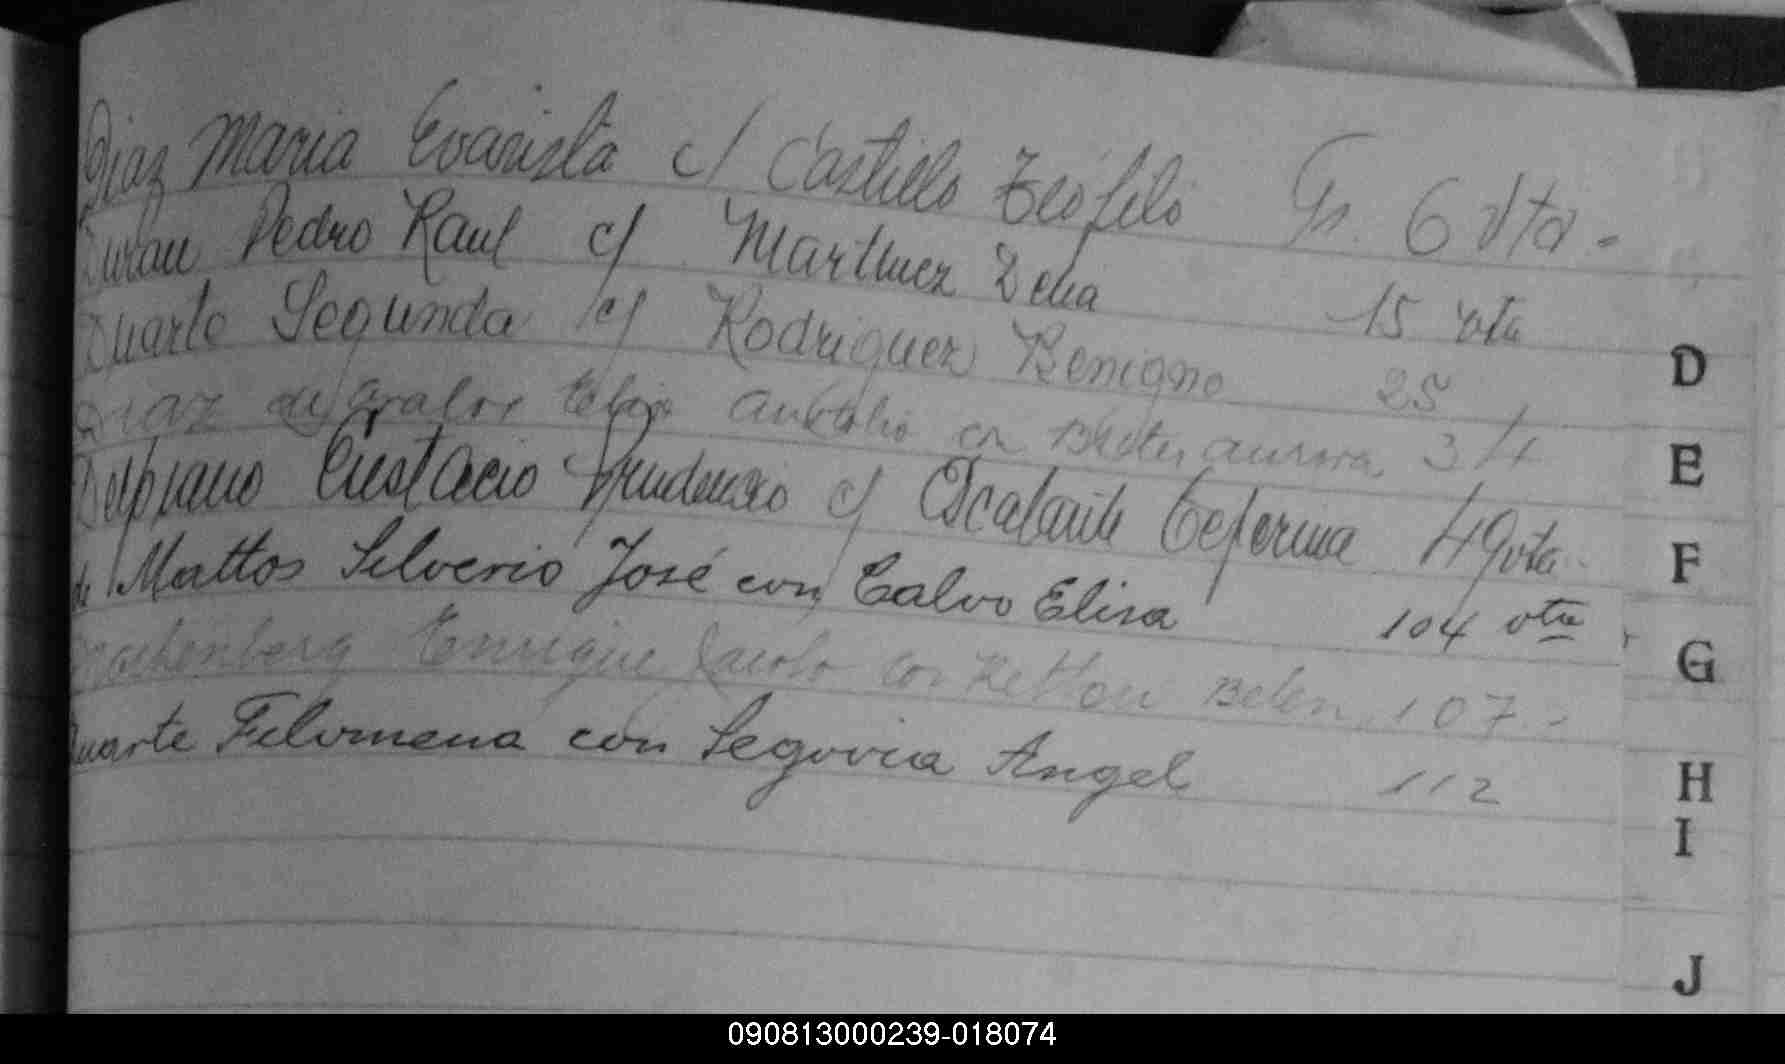 Diaz Maria Evarista c/ Castillo Teófilo Fs. 6 vta.
Duran Pedro Raul c/ Martinez Delia 15 vta
Duarte Segunda c/ Rodriguez Benigno 25
Diaz de Avalos con Aurora
Delpiano Eustacio Prudencio c/ Escalante Ceferina 49 vta.
de Mattos Silverio José con Calvo Elisa 104 vta
Enrique Jacobo con Belen 107.-
Duarte Filomena con Segovia Angel 112
D
E
F
G
H
I
J
090813000239-018074